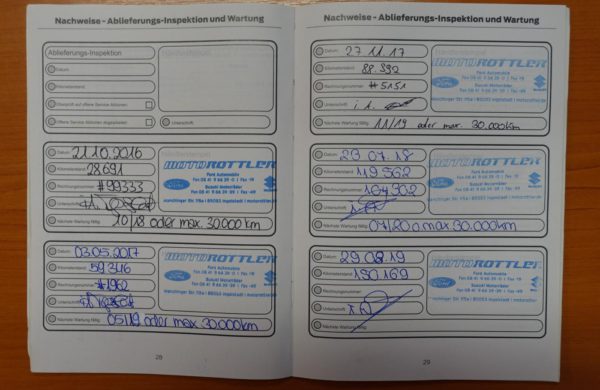 Nachweise - Ablieferungs-Inspektion und Wartung
Ablieferungs-Inspektion
Datum
Kilometerstand
Rechnungsnummer
Überprüft auf offene Service-Aktionen
Offene Service-Aktionen abgearbeitet
Unterschrift
Datum 21.10.2016
Kilometerstand 28691
Rechnungsnummer #99333
Unterschrift
Nächste Wartung fällig 10/18 oder max. 30.000 km
MOTO ROTTLER
Ford Automobile
Fon 08 41 9 66 39 -0 | Fax -19
Suzuki Motorräder
Fon 08 41 9 66 39 -39 | Fax -49
Ford
SUZUKI
Manchinger Str. 115a | 85053 Ingolstadt | motorottler.de
Datum 03.05.2017
Kilometerstand 59346
Rechnungsnummer #1962
Unterschrift
Nächste Wartung fällig 05/19 oder max. 30.000km
MOTO ROTTLER
Ford Automobile
Fon 08 41 9 66 39 -0 | Fax -19
Suzuki Motorräder
Fon 08 41 9 66 39 -39 | Fax -49
Ford
SUZUKI
Manchinger Str. 115a | 85053 Ingolstadt | motorottler.de
28
Nachweise - Ablieferungs-Inspektion und Wartung
Datum 27.11.17
Kilometerstand 88.392
Rechnungsnummer #5151
Unterschrift i.A.
Nächste Wartung fällig 11/19 oder max. 30.000km
MOTO ROTTLER
Ford Automobile
Fon 08 41 9 66 39 -0 | Fax -19
Suzuki Motorräder
Fon 08 41 9 66 39 -39 | Fax -49
Ford
SUZUKI
Manchinger Str. 115a | 85053 Ingolstadt | motorottler.de
Datum 23.07.18
Kilometerstand 119362
Rechnungsnummer 104302
Unterschrift
Nächste Wartung fällig 07/20 o. max. 30.000km
MOTO ROTTLER
Ford Automobile
Fon 08 41 9 66 39 -0 | Fax -19
Suzuki Motorräder
Fon 08 41 9 66 39 -39 | Fax -49
Ford
SUZUKI
Manchinger Str. 115a | 85053 Ingolstadt | motorottler.de
Datum 29.08.19
Kilometerstand 130169
Rechnungsnummer
Unterschrift
Nächste Wartung fällig
MOTO ROTTLER
Ford Automobile
Fon 08 41 9 66 39 -0 | Fax -19
Suzuki Motorräder
Fon 08 41 9 66 39 -39 | Fax -49
Ford
SUZUKI
Manchinger Str. 115a | 85053 Ingolstadt | motorottler.de
29